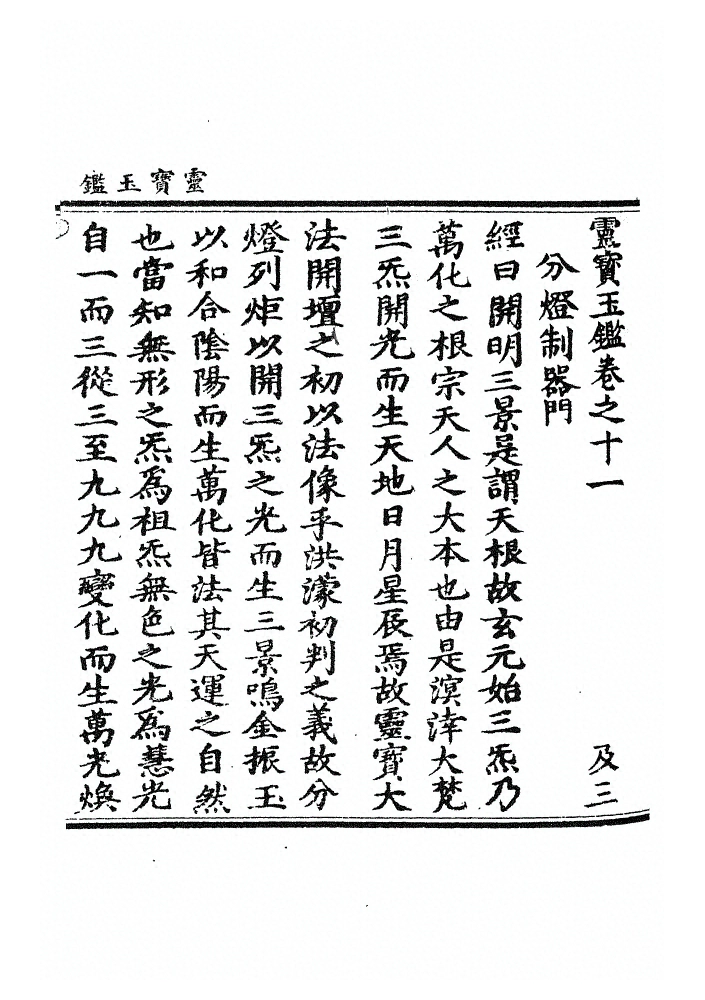 靈寶玉鑑
靈寶玉鑑卷之十一 及三
分燈制器門
經曰開明三景是謂天根故玄元始三炁乃
萬化之根宗天人之大本也由是溟涬大梵
三炁開光而生天地日月星辰焉故靈寶大
法開壇之初以法像乎洪濛初判之義故分
燈列炬以開三炁之光而生三景鳴金振玉
以和合陰陽而生萬化皆法其天運之自然
也當知無形之炁為祖炁無色之光為慧光
自一而三從三至九九九變化而生萬光煥